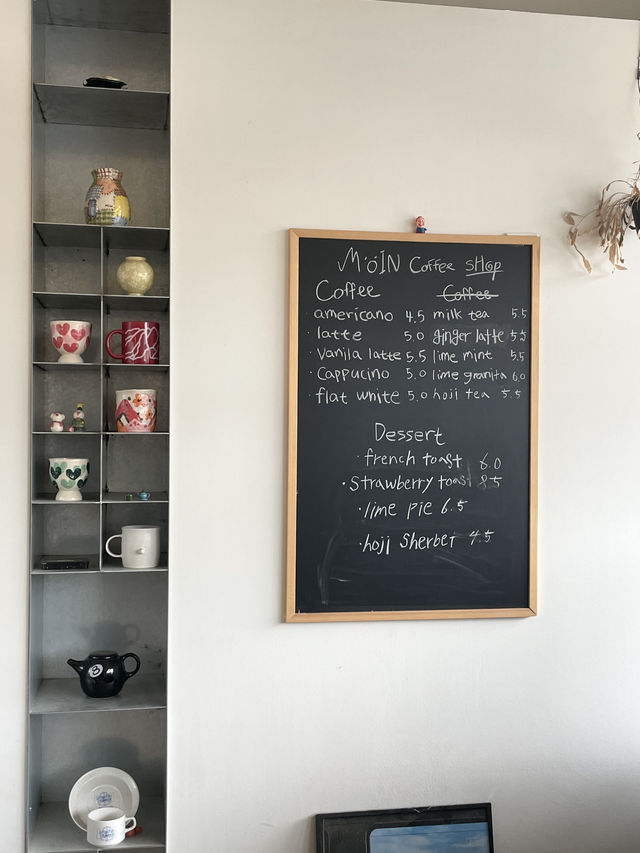 MöIN Coffee SHOP
Coffee
americano 4.5
latte 5.0
Vanila latte 5.5
Cappucino 5.0
flat white 5.0
Coffee
milk tea 5.5
ginger latte 5.5
lime mint 5.5
lime granita 6.0
hoji tea 5.5
Dessert
·french toast 6.0
·strawberry toast 8.5
·lime pie 6.5
·hoji sherbet 4.5